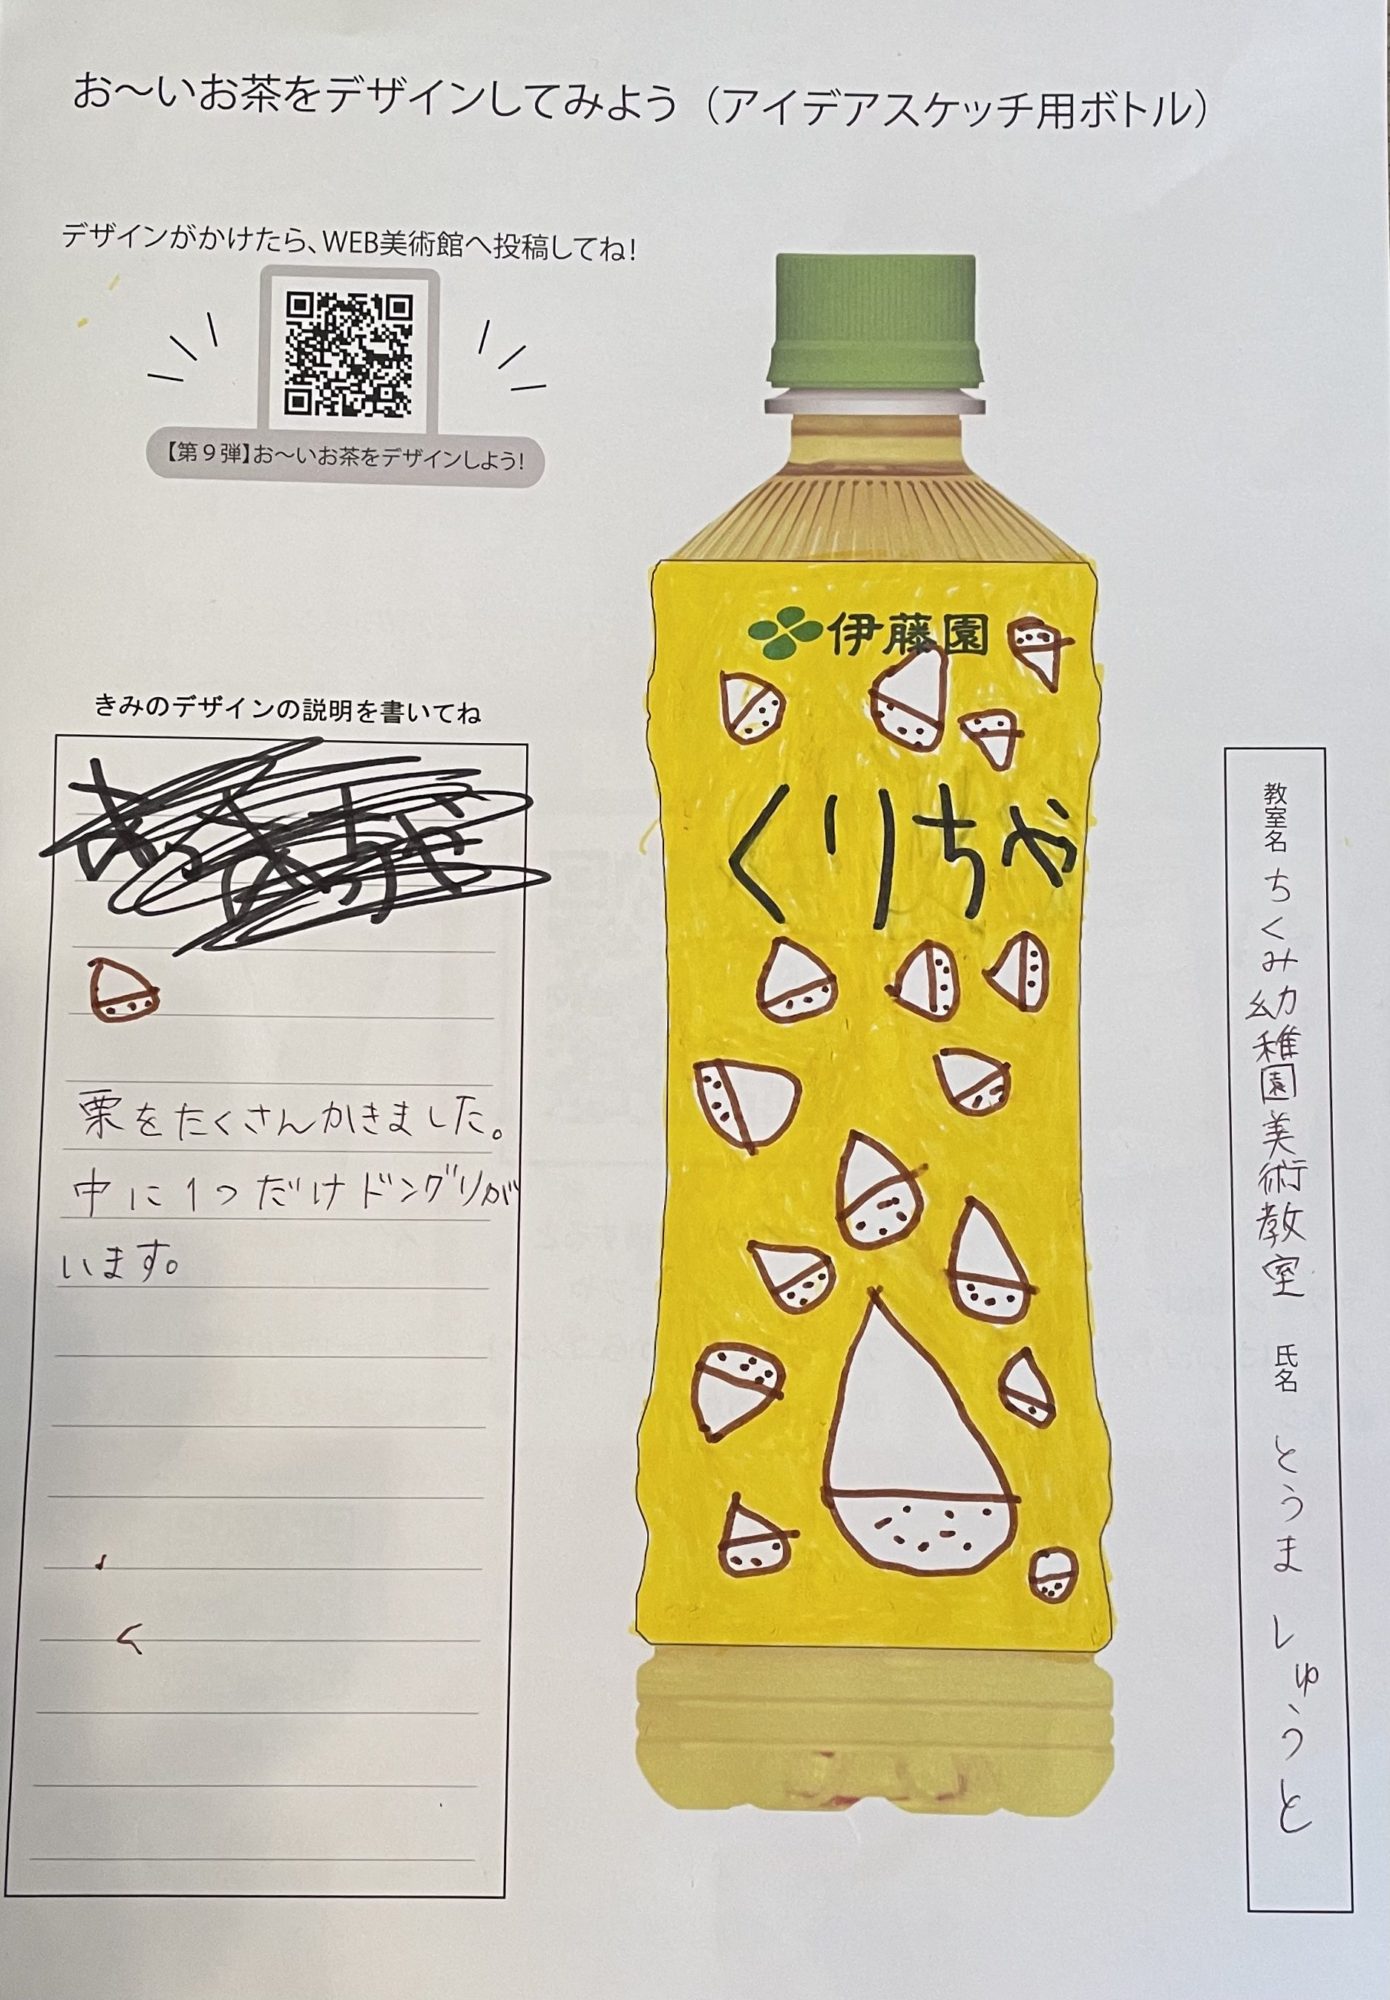 お～いお茶をデザインしてみよう（アイデアスケッチ用ボトル）
デザインがかけたら、WEB美術館へ投稿してね！
【第９弾】お～いお茶をデザインしよう！
伊藤園
くりちゃ
きみのデザインの説明を書いてね
栗をたくさんかきました。
中に1つだけドングリが
います。
教室名 ちくみ幼稚園美術教室 氏名 とうま しゅうと